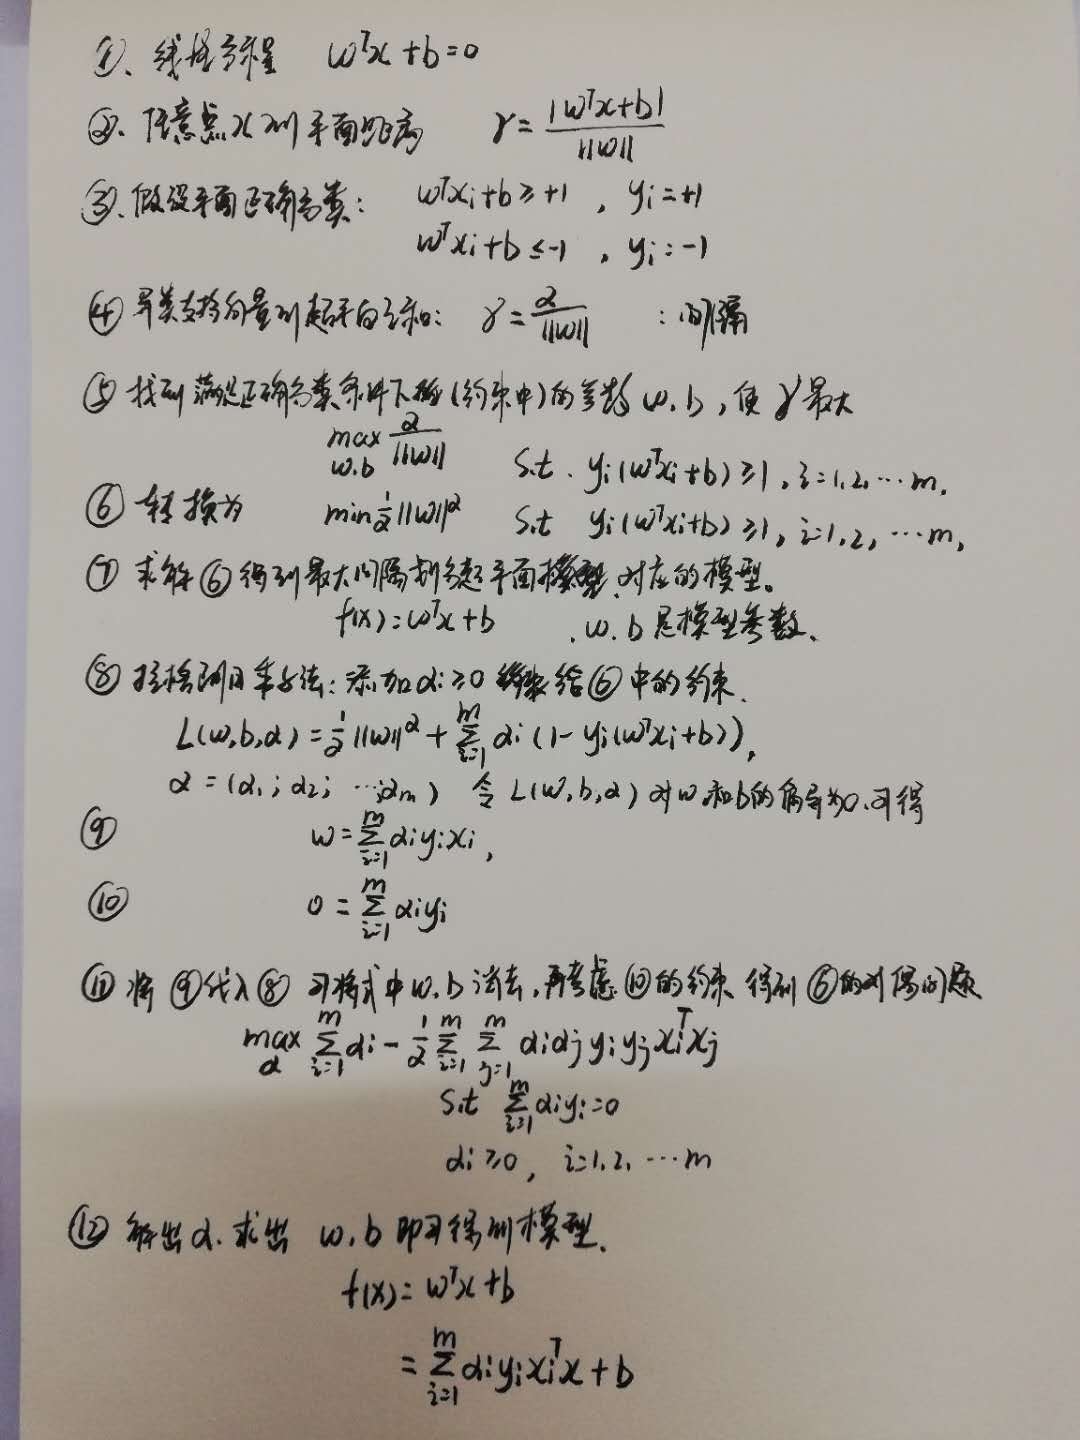 ①、线性方程 wᵀx+b=0
②、任意点x到平面距离 r=|wᵀx+b|/||w||
③、假设平面正确分类: wᵀxi+b≥+1 , yi=+1
wᵀxi+b≤-1 , yi=-1
④ 异类支持向量到超平面之和: γ=2/||w|| :间隔
⑤ 找到满足正确分类条件下(约束中)的参数 w.b, 使γ最大
max w.b 2/||w|| s.t. yi(wᵀxi+b)≥1, i=1,2,…m.
⑥ 转换为 min ½||w||² s.t yi(wᵀxi+b)≥1, i=1,2,…m,
⑦ 求解⑥得到最大间隔划分超平面对应的模型。
f(x)=wᵀx+b .w.b是模型参数、
⑧ 拉格朗日乘子法:添加αi≥0 给⑥中的约束.
L(w,b,α)=½||w||²+∑ᵐi=1 αi(1-yi(wᵀxi+b)),
α=(α1;α2;…;αm) 令L(w,b,α)对w和b的偏导为0,可得
⑨ w=∑ᵐi=1 αiyixi,
⑩ 0=∑ᵐi=1 αiyi
⑪ 将⑨代入⑧可将式中w.b消去,再考虑⑩的约束 得到⑥的对偶问题
max α ∑ᵐi=1 αi-½∑ᵐi=1 ∑ᵐj=1 αiαjyiyjxiᵀxj
s.t ∑ᵐi=1 αiyi=0
αi≥0, i=1,2,…m
⑫ 解出α.求出 w.b即可得到模型.
f(x)=wᵀx+b
=∑ᵐi=1 αiyixiᵀx+b